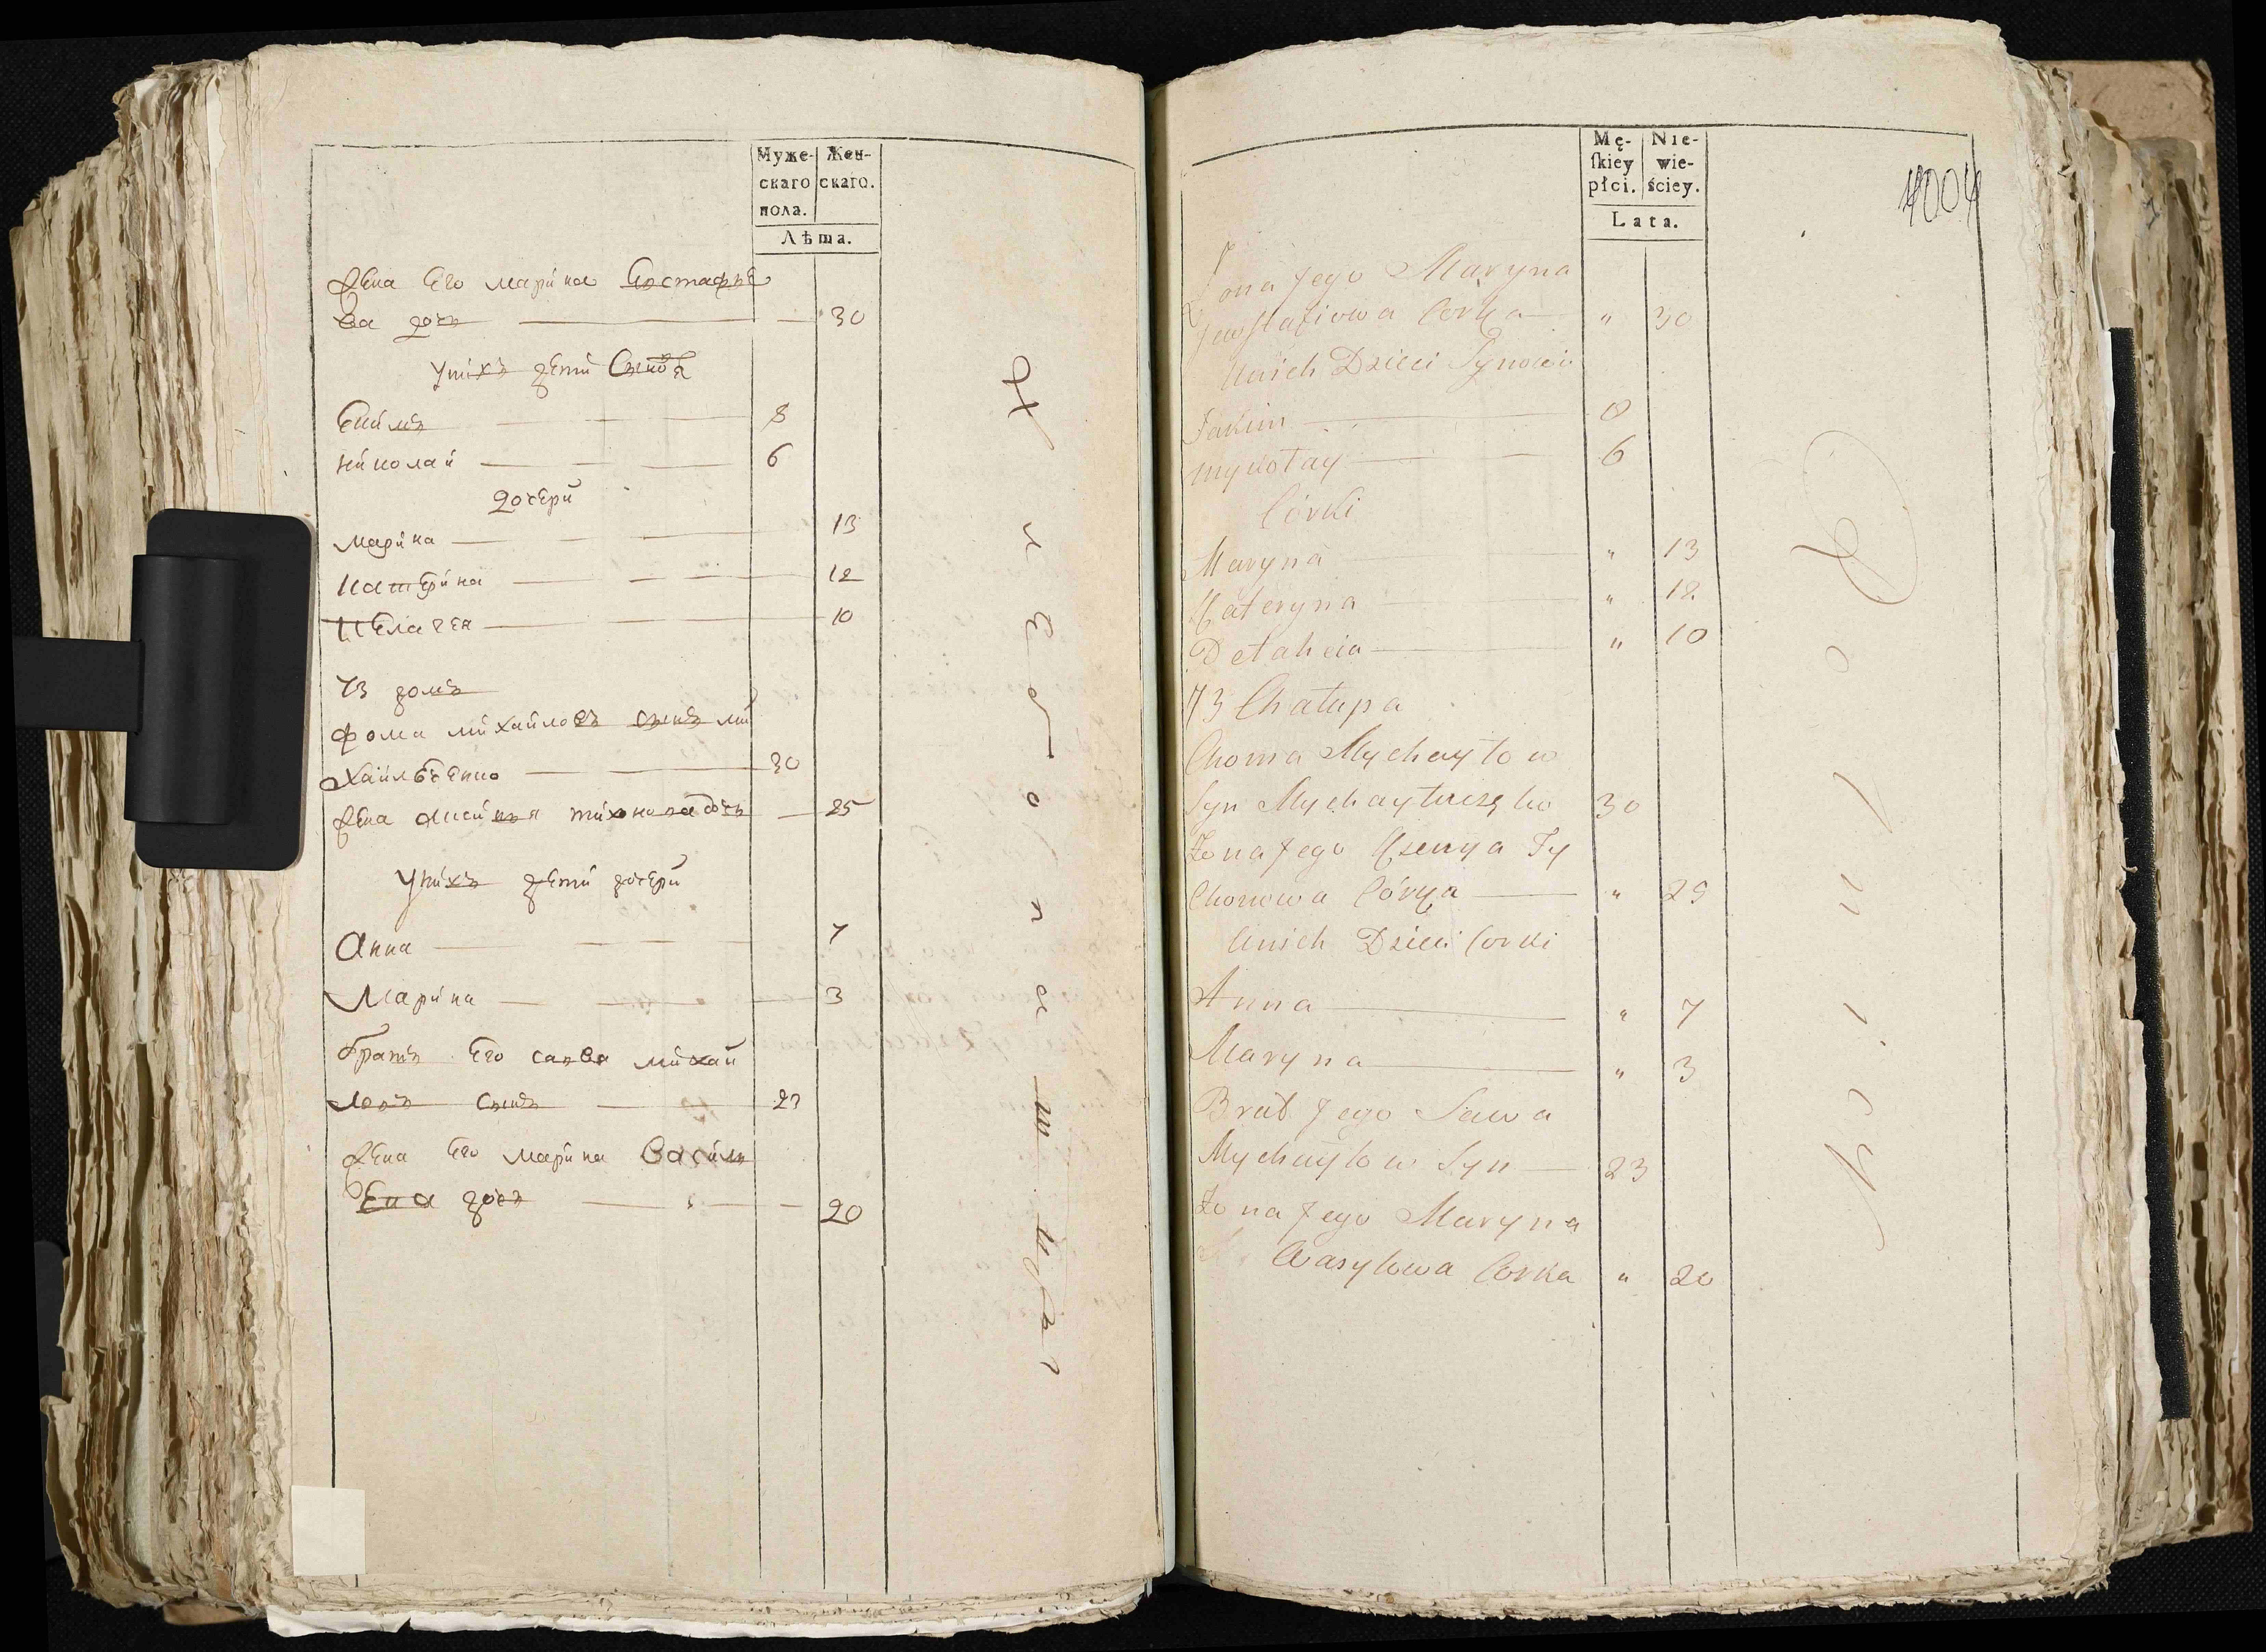 Муже-
скаго
пола.
Жен-
скаго.
Лѣта.
жена Его марина Евстафiе
ва дочь — 30
у нихъ дети Сыновя
Екимъ — 8
николай — 6
дочери
марина — 13
катерина — 12
Пелагея — 10
73 домъ
фома михайловъ сынъ ми
хайлеченко — 30
жена аксинья тихонова дочь — 25
у нихъ дети дочери
Анна — 7
Марина — 3
братъ Его савва михай
ловъ сынъ — 23
жена Его марина Василь
Ева дочь — 20
Mę-
ſkiey
płci.
Nie-
wie-
ściey.
Lata.
Żona Jego Maryna
Jewstafiowa Corka — " 30
Unich Dzieci Synowie
Jakim — 8
Mykołay — 6
Córki
Maryna — " 13
Kateryna — " 12
Pełaheia — " 10
73 Chałupa
Choma Mychayłow
Syn Mychayłuczęko 30
Żona Jego Ksenya Ty
Chonowa Córka — " 25
Unich Dzieci Corki
Anna — " 7
Maryna — " 3
Brat Jego Sawa
Mychayłow Syn — 23
Żona Jego Maryna
Wasylowa Corka " 20